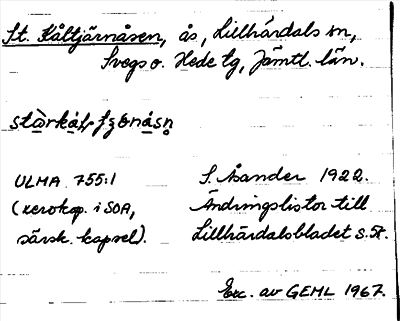 St. Kåltjärnåsen, ås, Lillhärdals sn,
Svegs o. Hede tg, Jämtl. län.
ULMA 755:1
(xerokop. i SOA,
särsk. kapsel).
S. Åsander 1922.
Ändringslistor till
Lillhärdalsbladet s.
Exc. av GEML 1967.